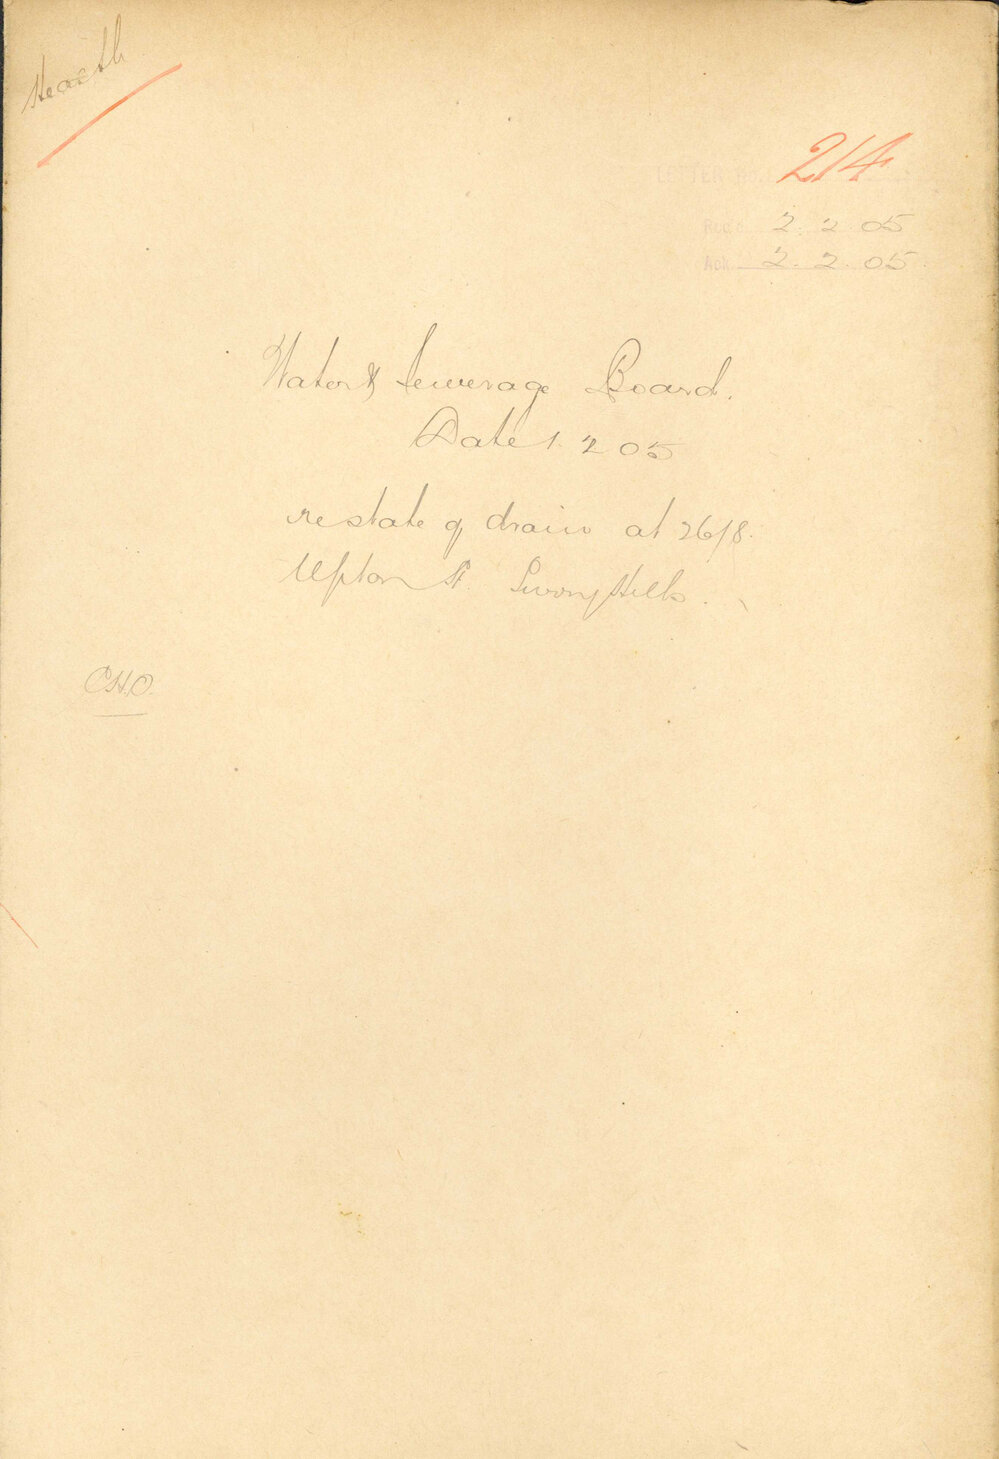 Health
214
LETTER No.
Recd. 2. 2. 05
Ack. 2. 2. 05
Water & Sewerage Board.
Date 1 2 05
re state of drain at 26/8.
Upton St. Surry Hills.
C.H.O.